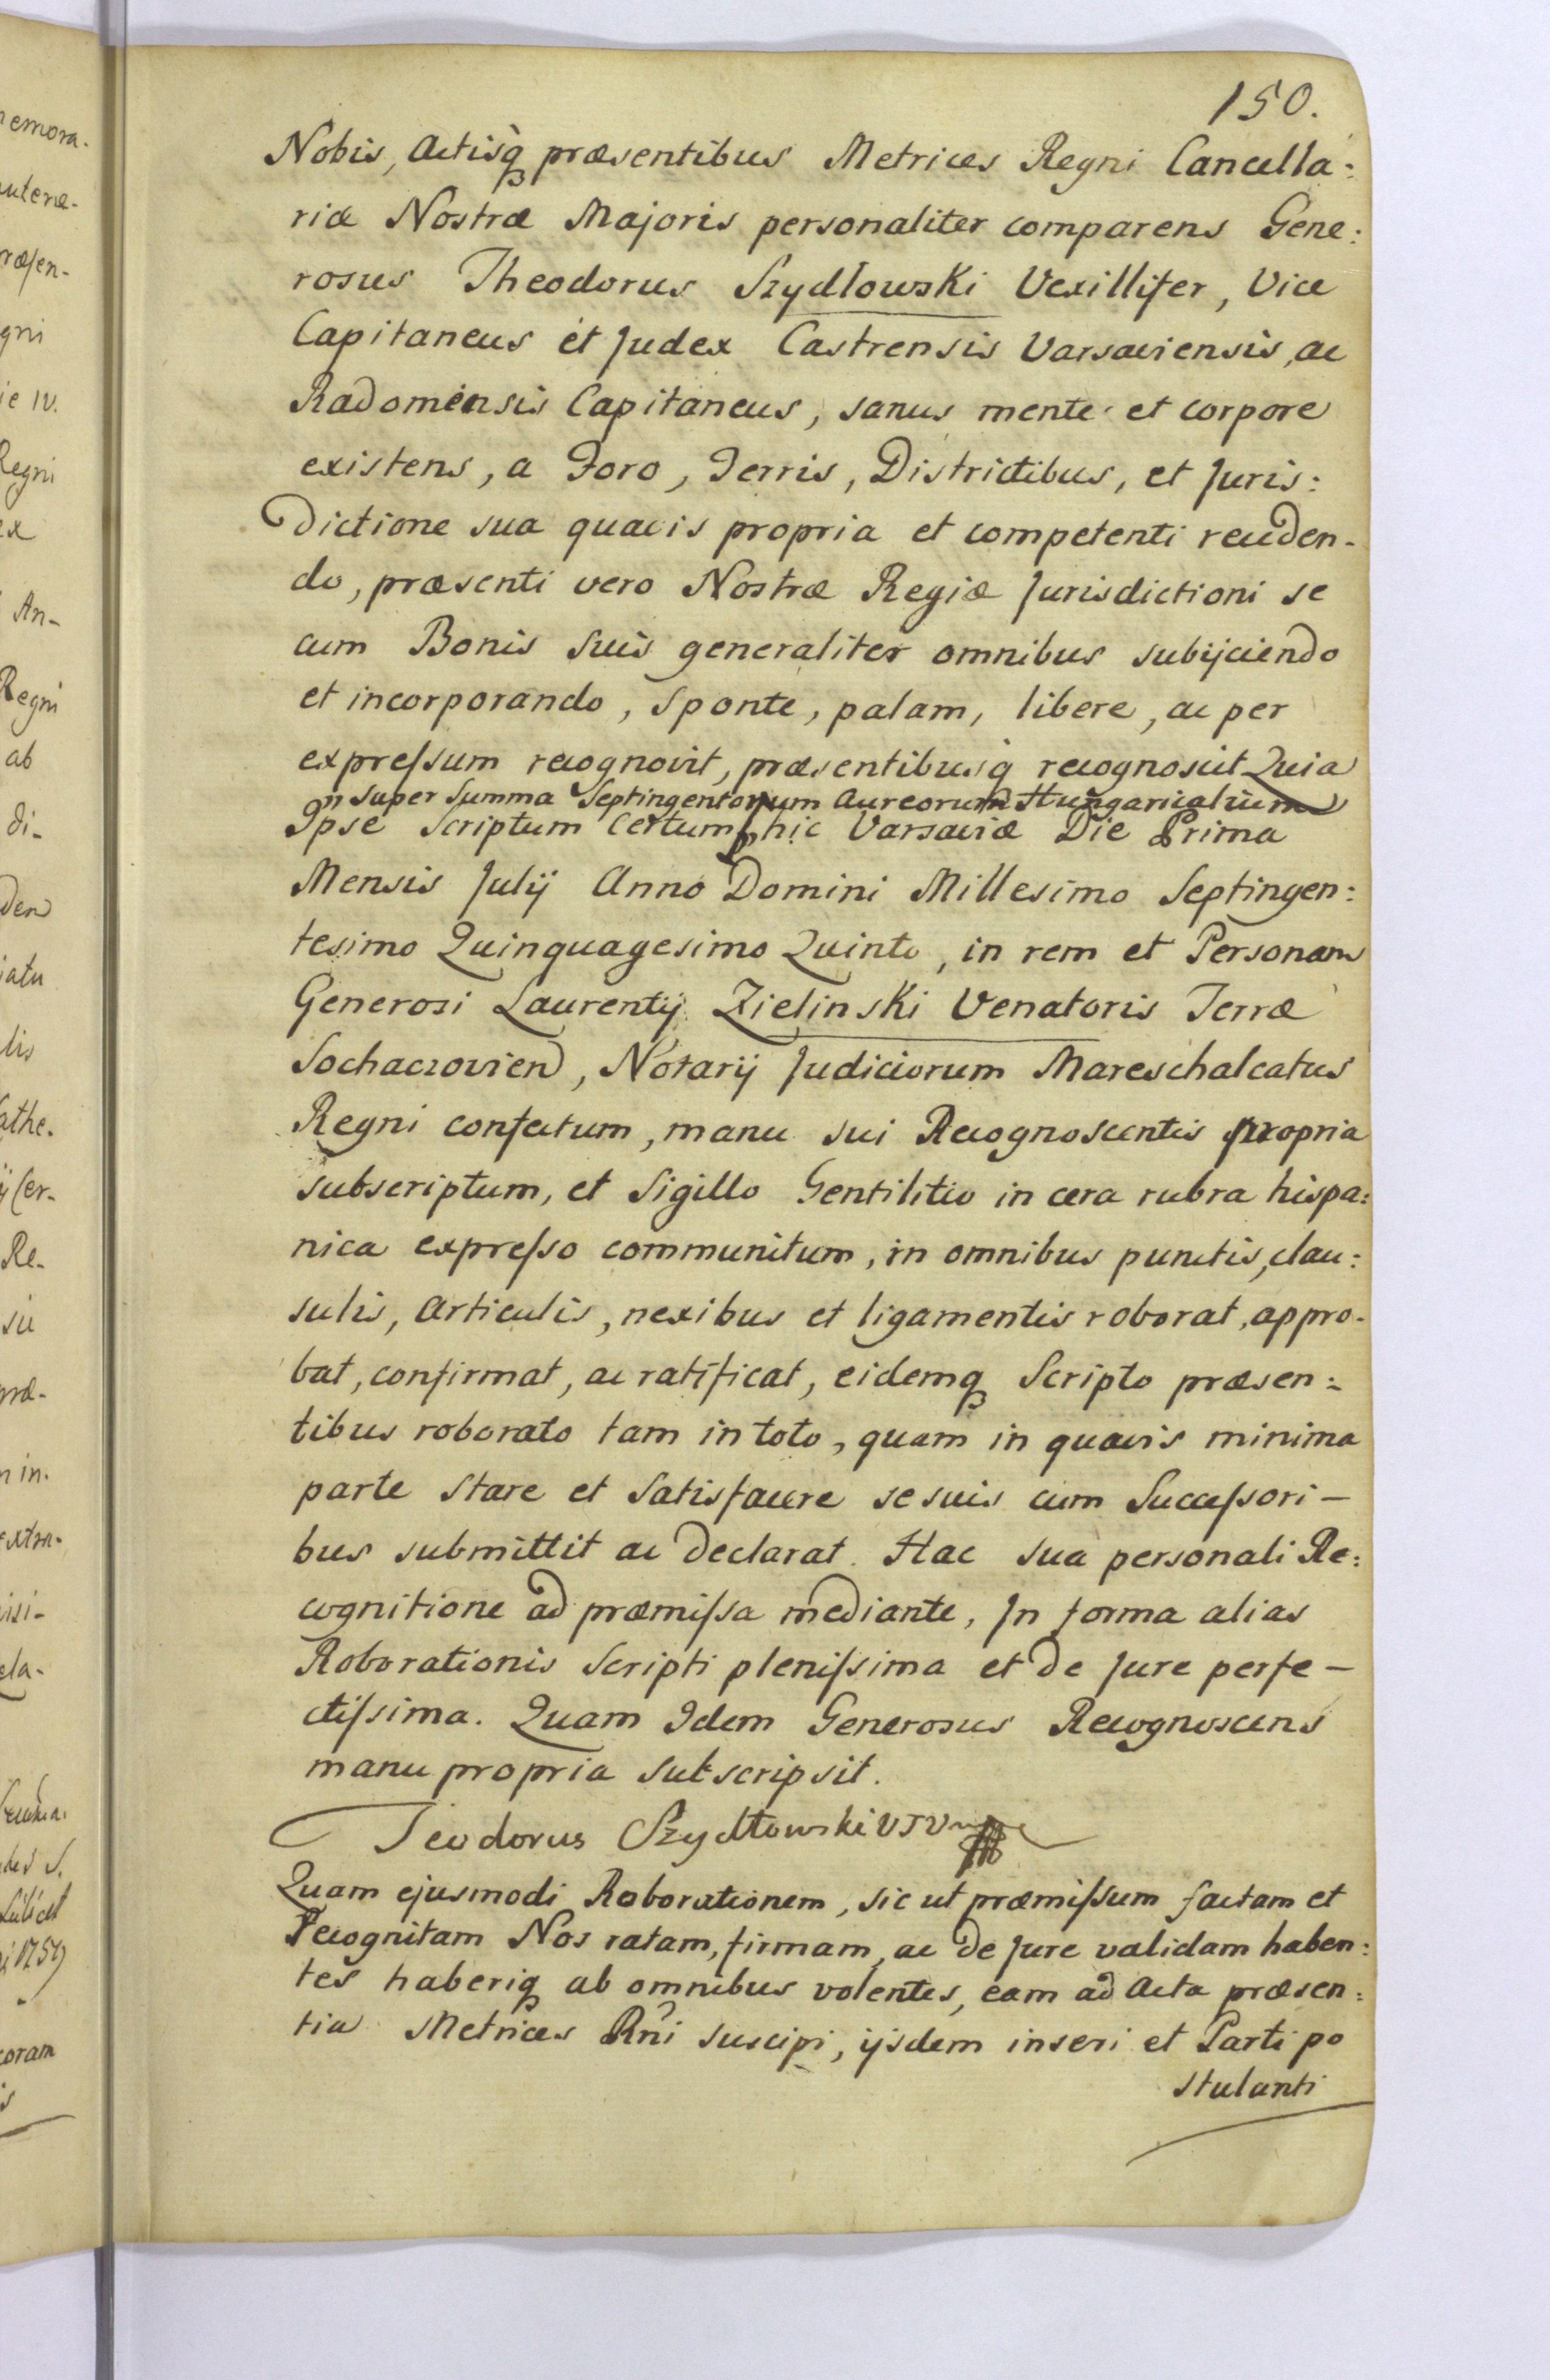 150.
Nobis, Actisq̀ præsentibus Metrices Regni Cancella:
riæ Nostræ Majoris personaliter comparens Gene:
rosus Theodorus Szydlowski Vexillifer, Vice
Capitaneus et Judex Castrensis Varsaviensis, ac
Radomiensis Capitaneus, sanus mente et corpore
existens, a Foro, Terris, Districtibus, et Juris:
dictione sua quavis propria et competenti receden-
do, præsenti vero Nostræ Regiæ Jurisdictioni se
cum Bonis suis generaliter omnibus subijciendo
et incorporando, sponte, palam, libere, ac per
expreſsum recognovit, præsentibusq̀ recognoscit Quia
super Summa Septingentorum Aureorum Hungaricalium
Ipse Scriptum Certum hic Varsaviæ Die Prima
Mensis Julij Anno Domini Millesimo Septingen:
tesimo Quinquagesimo Quinto, in rem et Personam
Generosi Laurentij Zielinski Venatoris Terræ
Sochaczovien, Notarij Judiciorum Mareschalcatus
Regni confectum, manu sui Recognoscentis propria
subscriptum, et Sigillo Gentilitio in cera rubra hispa:
nica expreſso communitum, in omnibus punctis, clau:
sulis, Articulis, nexibus et ligamentis roborat, appro-
bat, confirmat, ac ratificat, eidemq Scripto præsen:
tibus roborato tam in toto, quam in quavis minima
parte stare et satisfacere se suis cum Succeſsori-
bus submittit ac declarat. Hac sua personali Re:
cognitione ad præmiſsa mediante, In forma alias
Roborationis Scripti pleniſsima et de Jure perfe-
ctiſsima. Quam Idem Generosus Recognoscens
manu propria subscripsit.
Teodorus Szydłowski VJV
Quam ejusmodi Roborationem, sic ut præmiſsum factam et
Recognitam Nos ratam, firmam, ac de Jure validam haben:
tes haberiq ab omnibus volentes, eam ad Acta præsen:
tia Metrices Rñi suscipi, ijsdem inseri et Parti po
stulanti